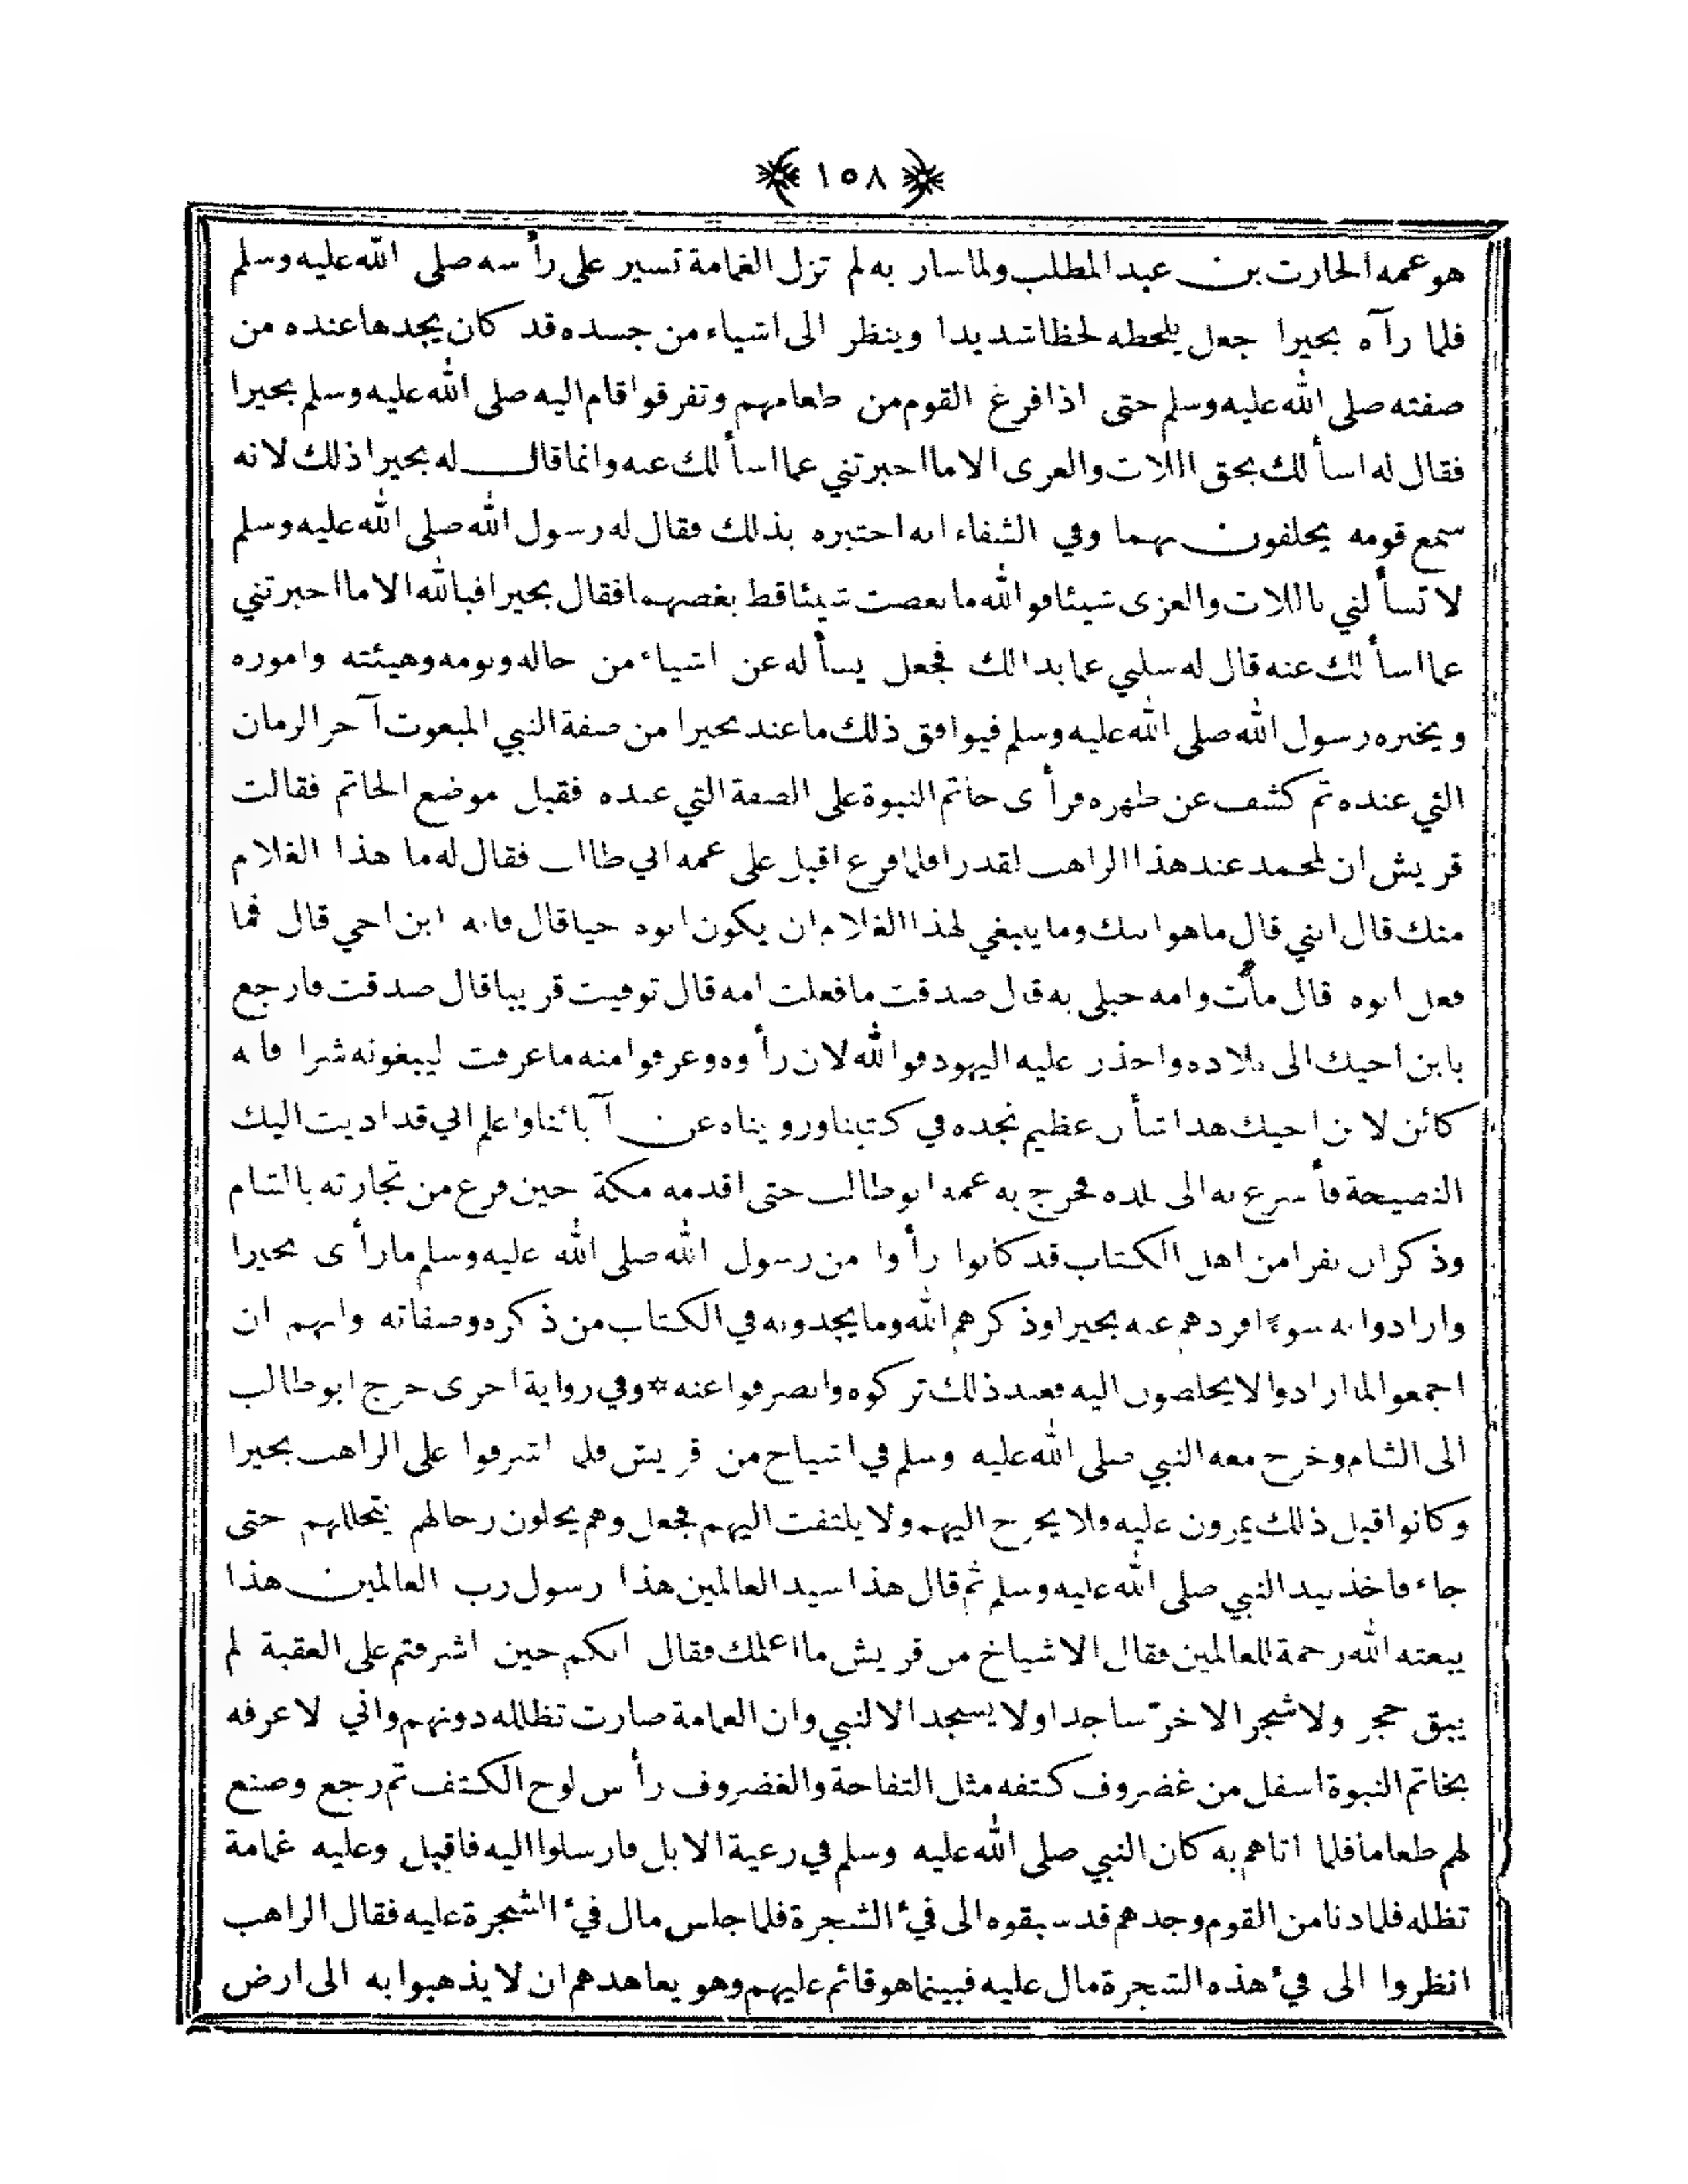 ١٥٨
هو عمه الحارث بن عبد المطلب ولما سار به لم تزل الغمامة تسير على رأسه صلى الله عليه وسلم
فلما رآه بحيرا جعل يلحظه لحظا شديدا وينظر الى اشياء من جسده قد كان يجدها عنده من
صفته صلى الله عليه وسلم حتى اذا فرغ القوم من طعامهم وتفرقوا قام اليه صلى الله عليه وسلم بحيرا
فقال له اسألك بحق اللات والعزى الا ما اخبرتني عما اسألك عنه وانما قال له بحيرا ذلك لانه
سمع قومه يحلفون بهما وفي الشفاء انه اختبره بذلك فقال له رسول الله صلى الله عليه وسلم
لا تسألني باللات والعزى شيئا فوالله ما بغضت شيئا قط بغضهما فقال بحيرا فبالله الا ما اخبرتني
عما اسألك عنه قال له سلني عما بدا لك فجعل يسأله عن اشياء من حاله ونومه وهيئته واموره
ويخبره رسول الله صلى الله عليه وسلم فيوافق ذلك ما عند بحيرا من صفة النبي المبعوث آخر الزمان
التي عنده ثم كشف عن ظهره فرأى خاتم النبوة على الصفة التي عنده فقبل موضع الخاتم فقالت
قريش ان لمحمد عند هذا الراهب لقدرا فلما فرغ اقبل على عمه ابي طالب فقال له ما هذا الغلام
منك قال ابني قال ما هو ابنك وما ينبغي لهذا الغلام ان يكون ابوه حيا قال فانه ابن اخي قال فما
فعل ابوه قال مات وامه حبلى به قال صدقت ما فعلت امه قال توفيت قريبا قال صدقت فارجع
بابن اخيك الى بلاده واحذر عليه اليهود فوالله لان رأوه وعرفوا منه ما عرفت ليبغونه شرا فانه
كائن لابن اخيك هذا شأن عظيم نجده في كتبنا ورويناه عن آبائنا واعلم اني قد اديت اليك
النصيحة فأسرع به الى بلده فخرج به عمه ابو طالب حتى اقدمه مكة حين فرغ من تجارته بالشام
وذكر ان نفرا من اهل الكتاب قد كانوا رأوا من رسول الله صلى الله عليه وسلم ما رأى بحيرا
وارادوا به سوءًا فردهم عنه بحيرا وذكرهم الله وما يجدونه في الكتاب من ذكره وصفاته وانهم ان
اجمعوا لما ارادوا لا يخلصون اليه فعند ذلك تركوه وانصرفوا عنه * وفي رواية اخرى خرج ابو طالب
الى الشام وخرج معه النبي صلى الله عليه وسلم في اشياخ من قريش فلما اشرفوا على الراهب بحيرا
وكانوا قبل ذلك يمرون عليه ولا يخرج اليهم ولا يلتفت اليهم فجعل وهم يحلون رحالهم يتخللهم حتى
جاء فاخذ بيد النبي صلى الله عليه وسلم ثم قال هذا سيد العالمين هذا رسول رب العالمين هذا
يبعثه الله رحمة للعالمين فقال الاشياخ من قريش ما اعلمك فقال انكم حين اشرفتم على العقبة لم
يبق حجر ولا شجر الا خرّ ساجدا ولا يسجد الا لنبي وان الغمامة صارت تظلله دونهم واني لا عرفه
بخاتم النبوة اسفل من غضروف كتفه مثل التفاحة والغضروف رأس لوح الكتف ثم رجع وصنع
لهم طعاما فلما اتاهم به كان النبي صلى الله عليه وسلم في رعية الابل فارسلوا اليه فاقبل وعليه غمامة
تظله فلما دنا من القوم وجدهم قد سبقوه الى فيء الشجرة فلما جلس مال فيء الشجرة عليه فقال الراهب
انظروا الى فيء هذه الشجرة مال عليه فبينما هو قائم عليهم وهو يعاهدهم ان لا يذهبوا به الى ارض